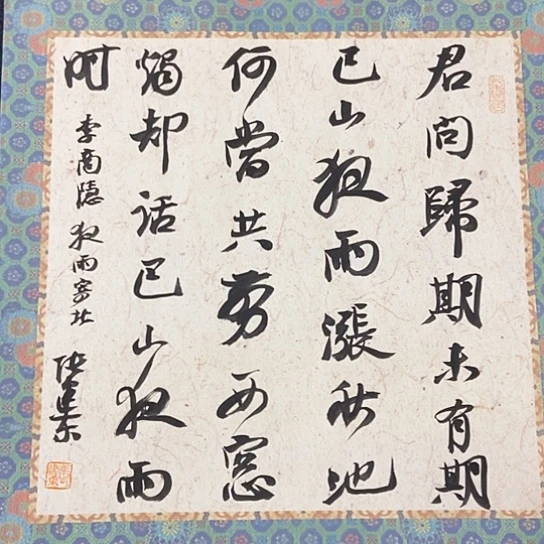 君問歸期未有期
巴山夜雨漲秋池
何當共剪西窓
燭却話巴山夜雨
时
李商隱夜雨寄北